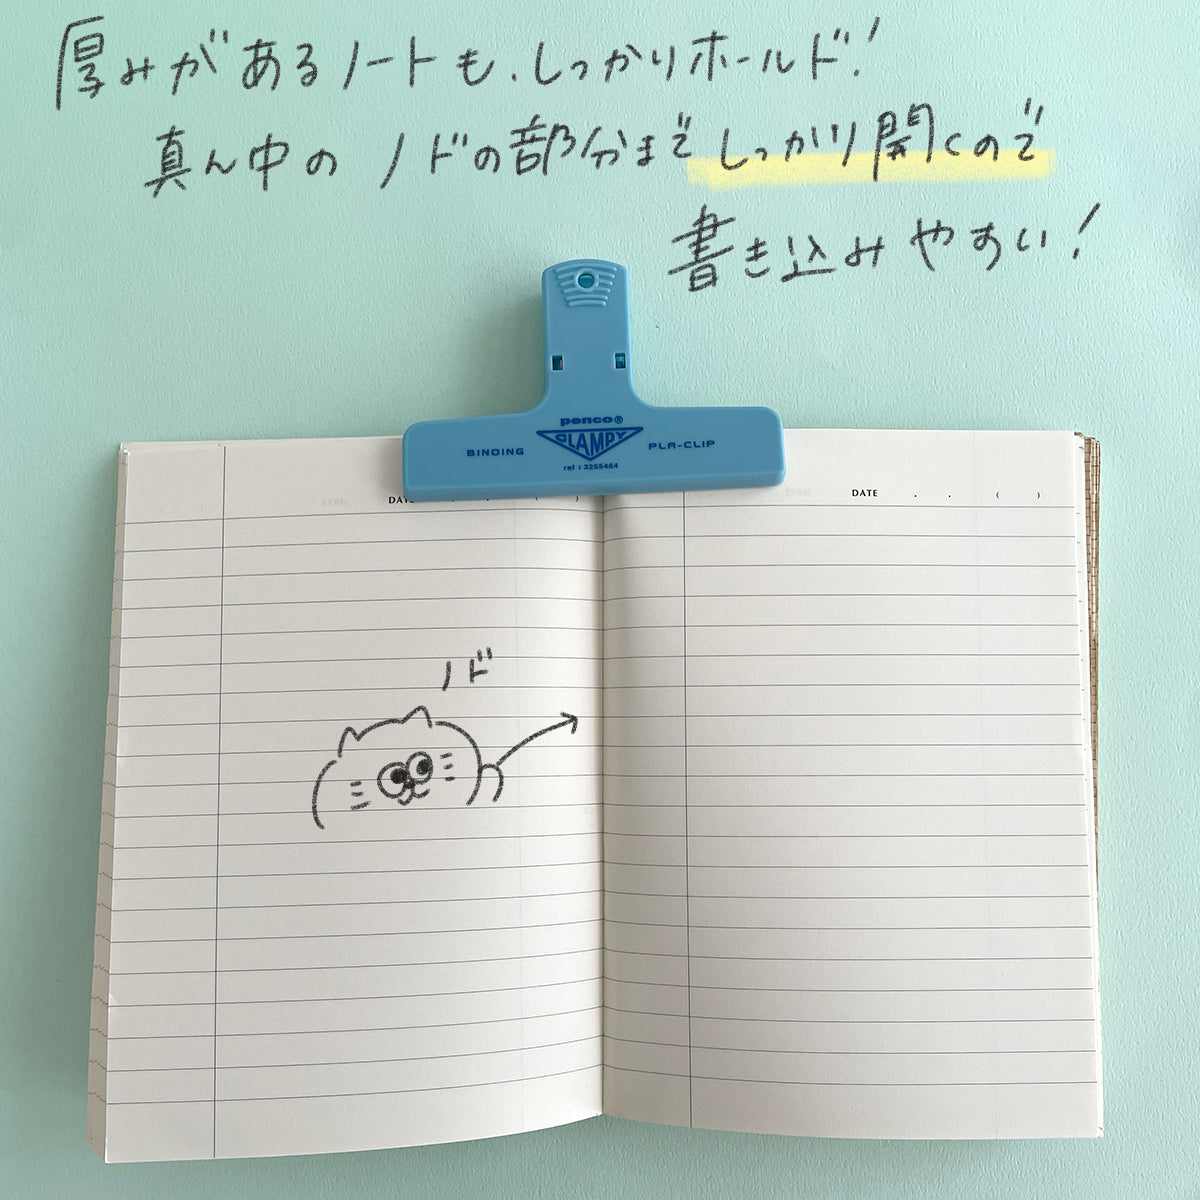 厚みがあるノートも、しっかりホールド!
真ん中のノドの部分までしっかり開くので
書き込みやすい!
penco®
CLAMPY
BINDING
PLA-CLIP
ref : 3265464
DATE . . ( )
DATE . . ( )
ノド